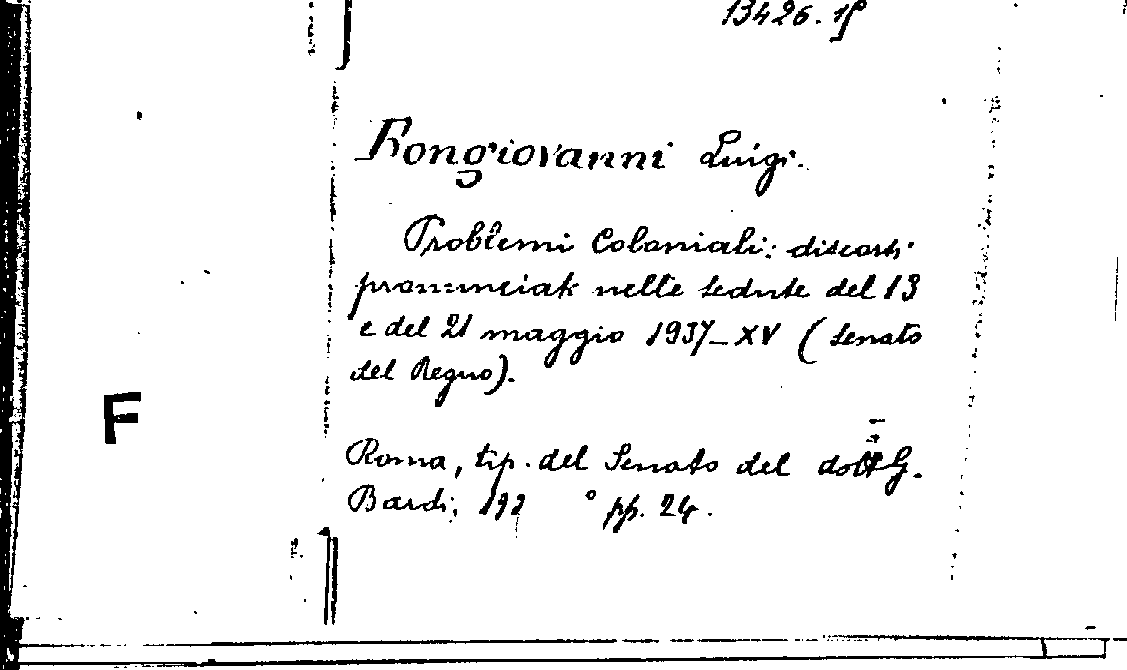 13426.15
Bongiovanni Luigi.
Problemi Coloniali: discorsi
pronunciati nelle sedute del 13
e del 21 maggio 1937-XV (Senato
del Regno).
F
Roma, tip. del Senato del dott. G.
Bardi, 193 ° pp. 24.